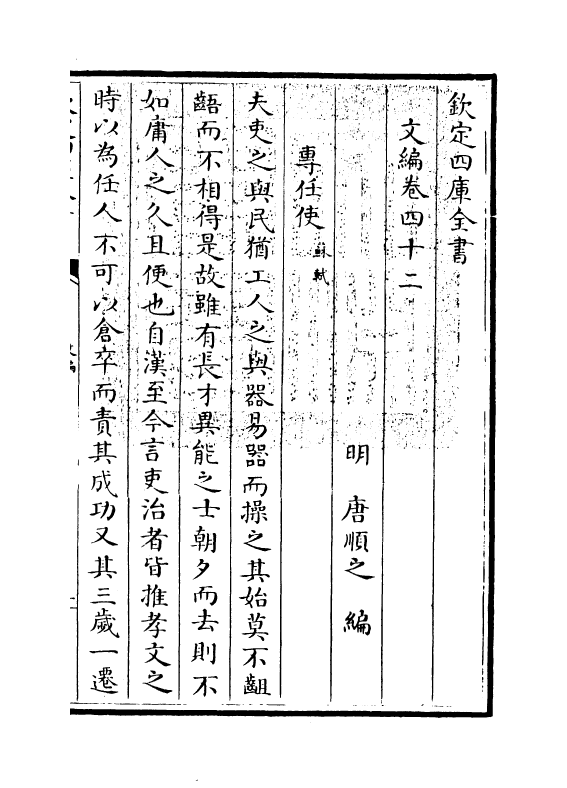 欽定四庫全書
文編卷四十二
明 唐順之 編
專任使 蘇軾
夫吏之與民猶工人之與器易器而操之其始莫不齟
齬而不相得是故雖有長才異能之士朝夕而去則不
如庸人之久且便也自漢至今言吏治者皆推孝文之
時以為任人不可以倉卒而責其成功又其三歲一遷